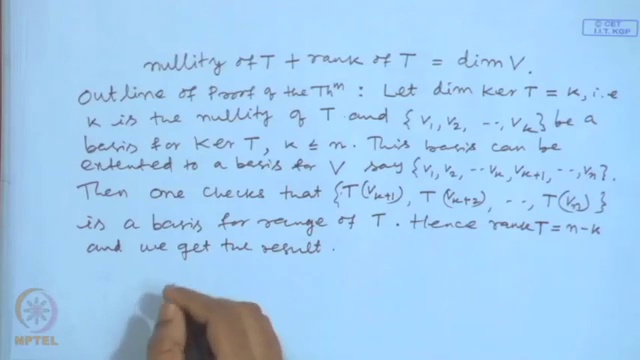 © CET
I.I.T. KGP
nullity of T + rank of T = dim V.
Outline of Proof of the Thm : Let dim Ker T = k, i.e
k is the nullity of T and {v1, v2, ..., vk} be a
basis for Ker T, k ≤ n. This basis can be
extented to a basis for V say {v1, v2, .. vk, vk+1, .., vn}.
Then one checks that {T(vk+1), T(vk+2), .., T(vn)}
is a basis for range of T. Hence rank T = n-k
and we get the result.
NPTEL